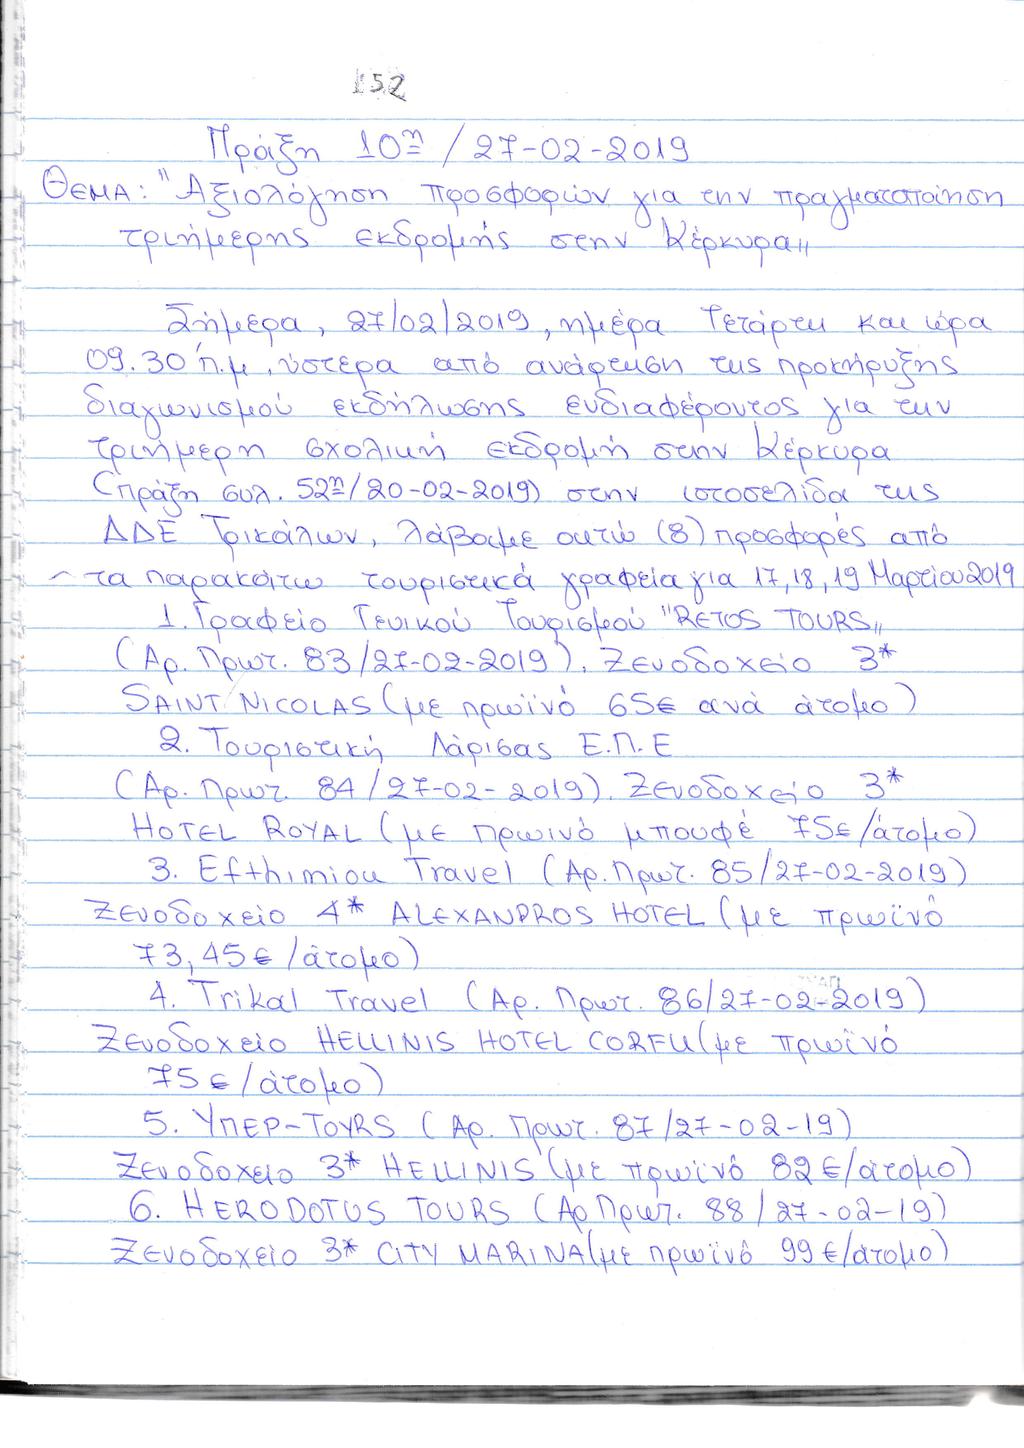 152
Πράξη 10η / 27-02-2019
ΘΕΜΑ: "Αξιολόγηση προσφορών για την πραγματοποίηση
τριήμερης εκδρομής στην Κέρκυρα"
Σήμερα, 27/02/2019, ημέρα Τετάρτη και ώρα
09.30 π.μ, ύστερα από ανάρτηση της προκήρυξης
διαγωνισμού εκδήλωσης ενδιαφέροντος για την
τριήμερη σχολική εκδρομή στην Κέρκυρα
(πράξη συλ. 52η/20-02-2019) στην ιστοσελίδα της
ΔΔΕ Τρικάλων, λάβαμε οκτώ (8) προσφορές από
τα παρακάτω τουριστικά γραφεία για 17,18,19 Μαρτίου 2019
1. Γραφείο Γενικού Τουρισμού "RETOS TOURS"
(Αρ. Πρωτ. 83/27-02-2019). Ξενοδοχείο 3*
SAINT NICOLAS (με πρωϊνό 65€ ανά άτομο)
2. Τουριστική Λάρισας Ε.Π.Ε
(Αρ. Πρωτ. 84/27-02-2019). Ξενοδοχείο 3*
HOTEL ROYAL (με πρωινό μπουφέ 75€/άτομο)
3. Efthimiou Travel (Αρ. Πρωτ. 85/27-02-2019)
Ξενοδοχείο 4* ALEXANDROS HOTEL (με πρωϊνό
73,45€/άτομο)
4. Trikal Travel (Αρ. Πρωτ. 86/27-02-2019)
Ξενοδοχείο HELLINIS HOTEL CORFU (με πρωϊνό
75€/άτομο)
5. ΥΠΕΡ-TOYRS (Αρ. Πρωτ. 87/27-02-19)
Ξενοδοχείο 3* HELLINIS (με πρωϊνό 82€/άτομο)
6. HERODOTUS TOURS (Αρ Πρωτ. 88/27-02-19)
Ξενοδοχείο 3* CITY MARINA (με πρωϊνό 99€/άτομο)